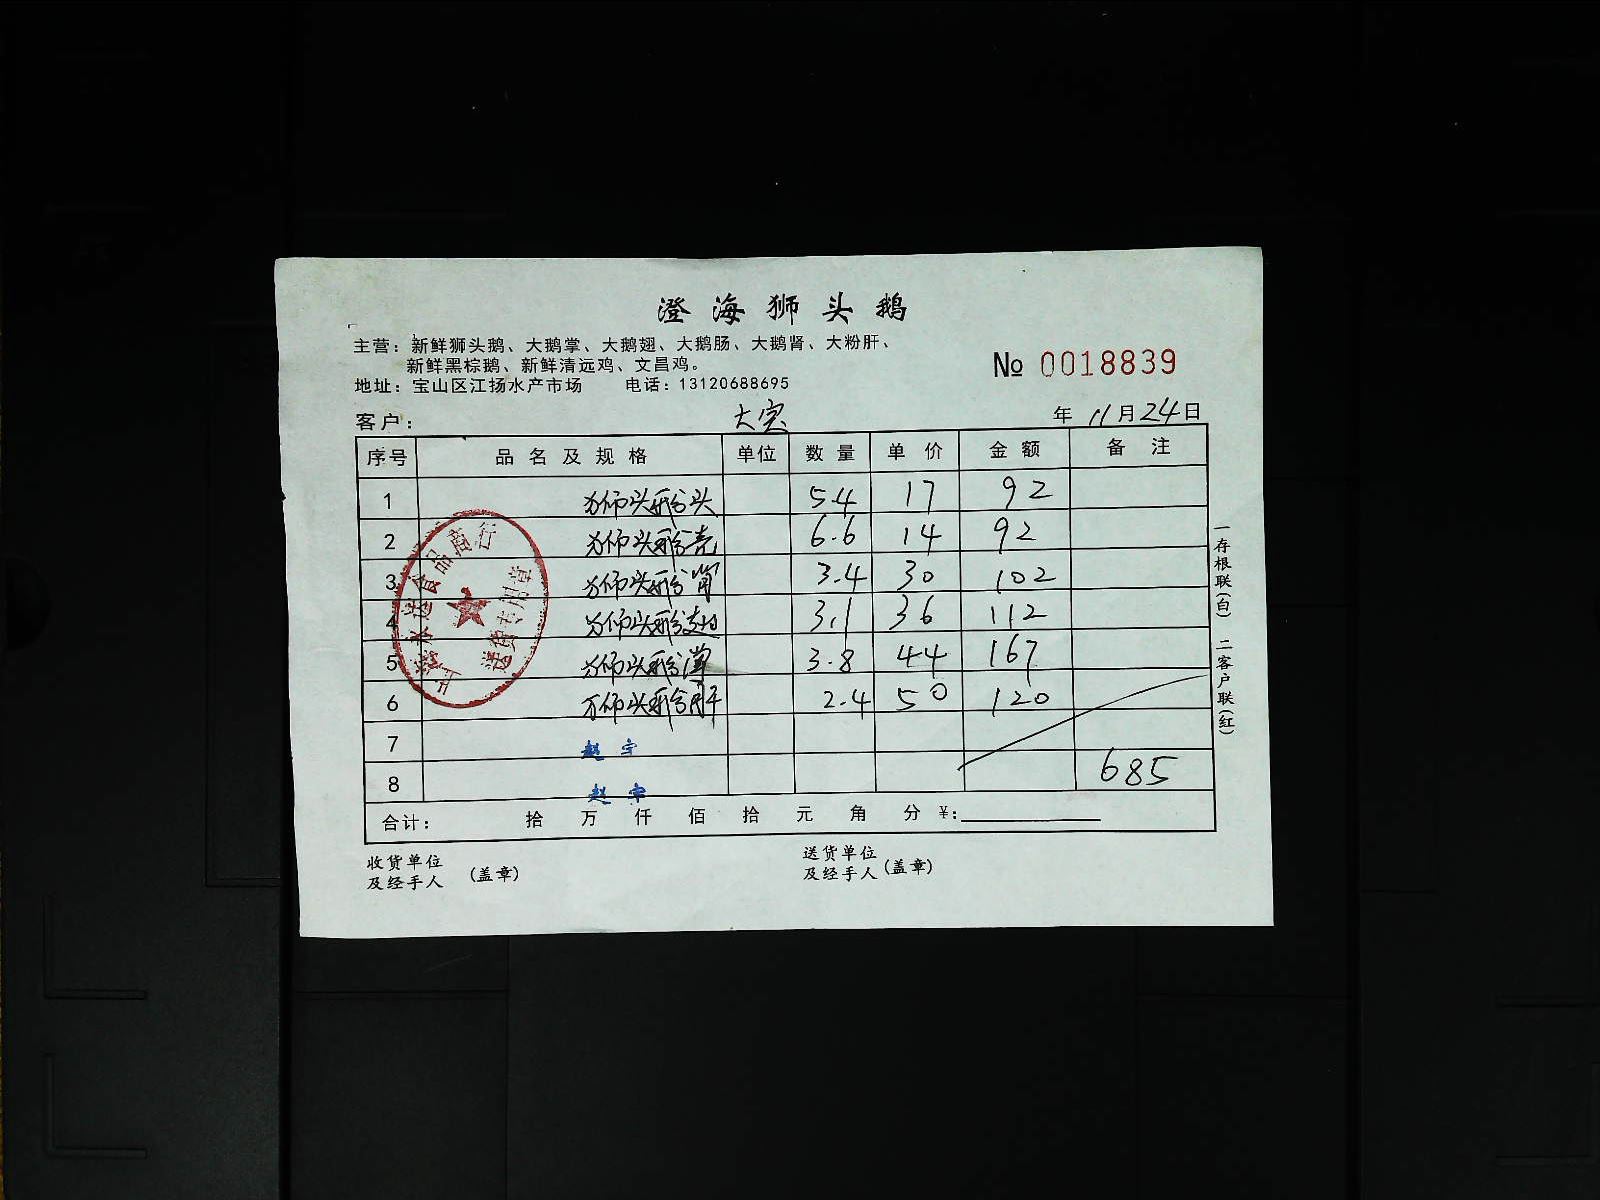 澄海狮头鹅
主营：新鲜狮头鹅、大鹅掌、大鹅翅、大鹅肠、大鹅肾、大粉肝、
新鲜黑棕鹅、新鲜清远鸡、文昌鸡。
№ 0018839
地址：宝山区江扬水产市场 电话：13120688695
客户： 大宾 年 11月24日
序号 品名及规格 单位 数量 单价 金额 备注
1 狮头鹅头 5.4 17 92
2 狮头鹅壳 6.6 14 92
3 狮头鹅 3.4 30 102
4 狮头鹅翅 3.1 36 112
5 狮头鹅掌 3.8 44 167
6 狮头鹅肝 2.4 50 120
7 赵宇
8 赵宇 685
合计： 拾 万 仟 佰 拾 元 角 分 ¥：
收货单位
及经手人 (盖章)
送货单位
及经手人 (盖章)
一存根联(白) 二客户联(红)
上海 永达食品商行
送货专用章